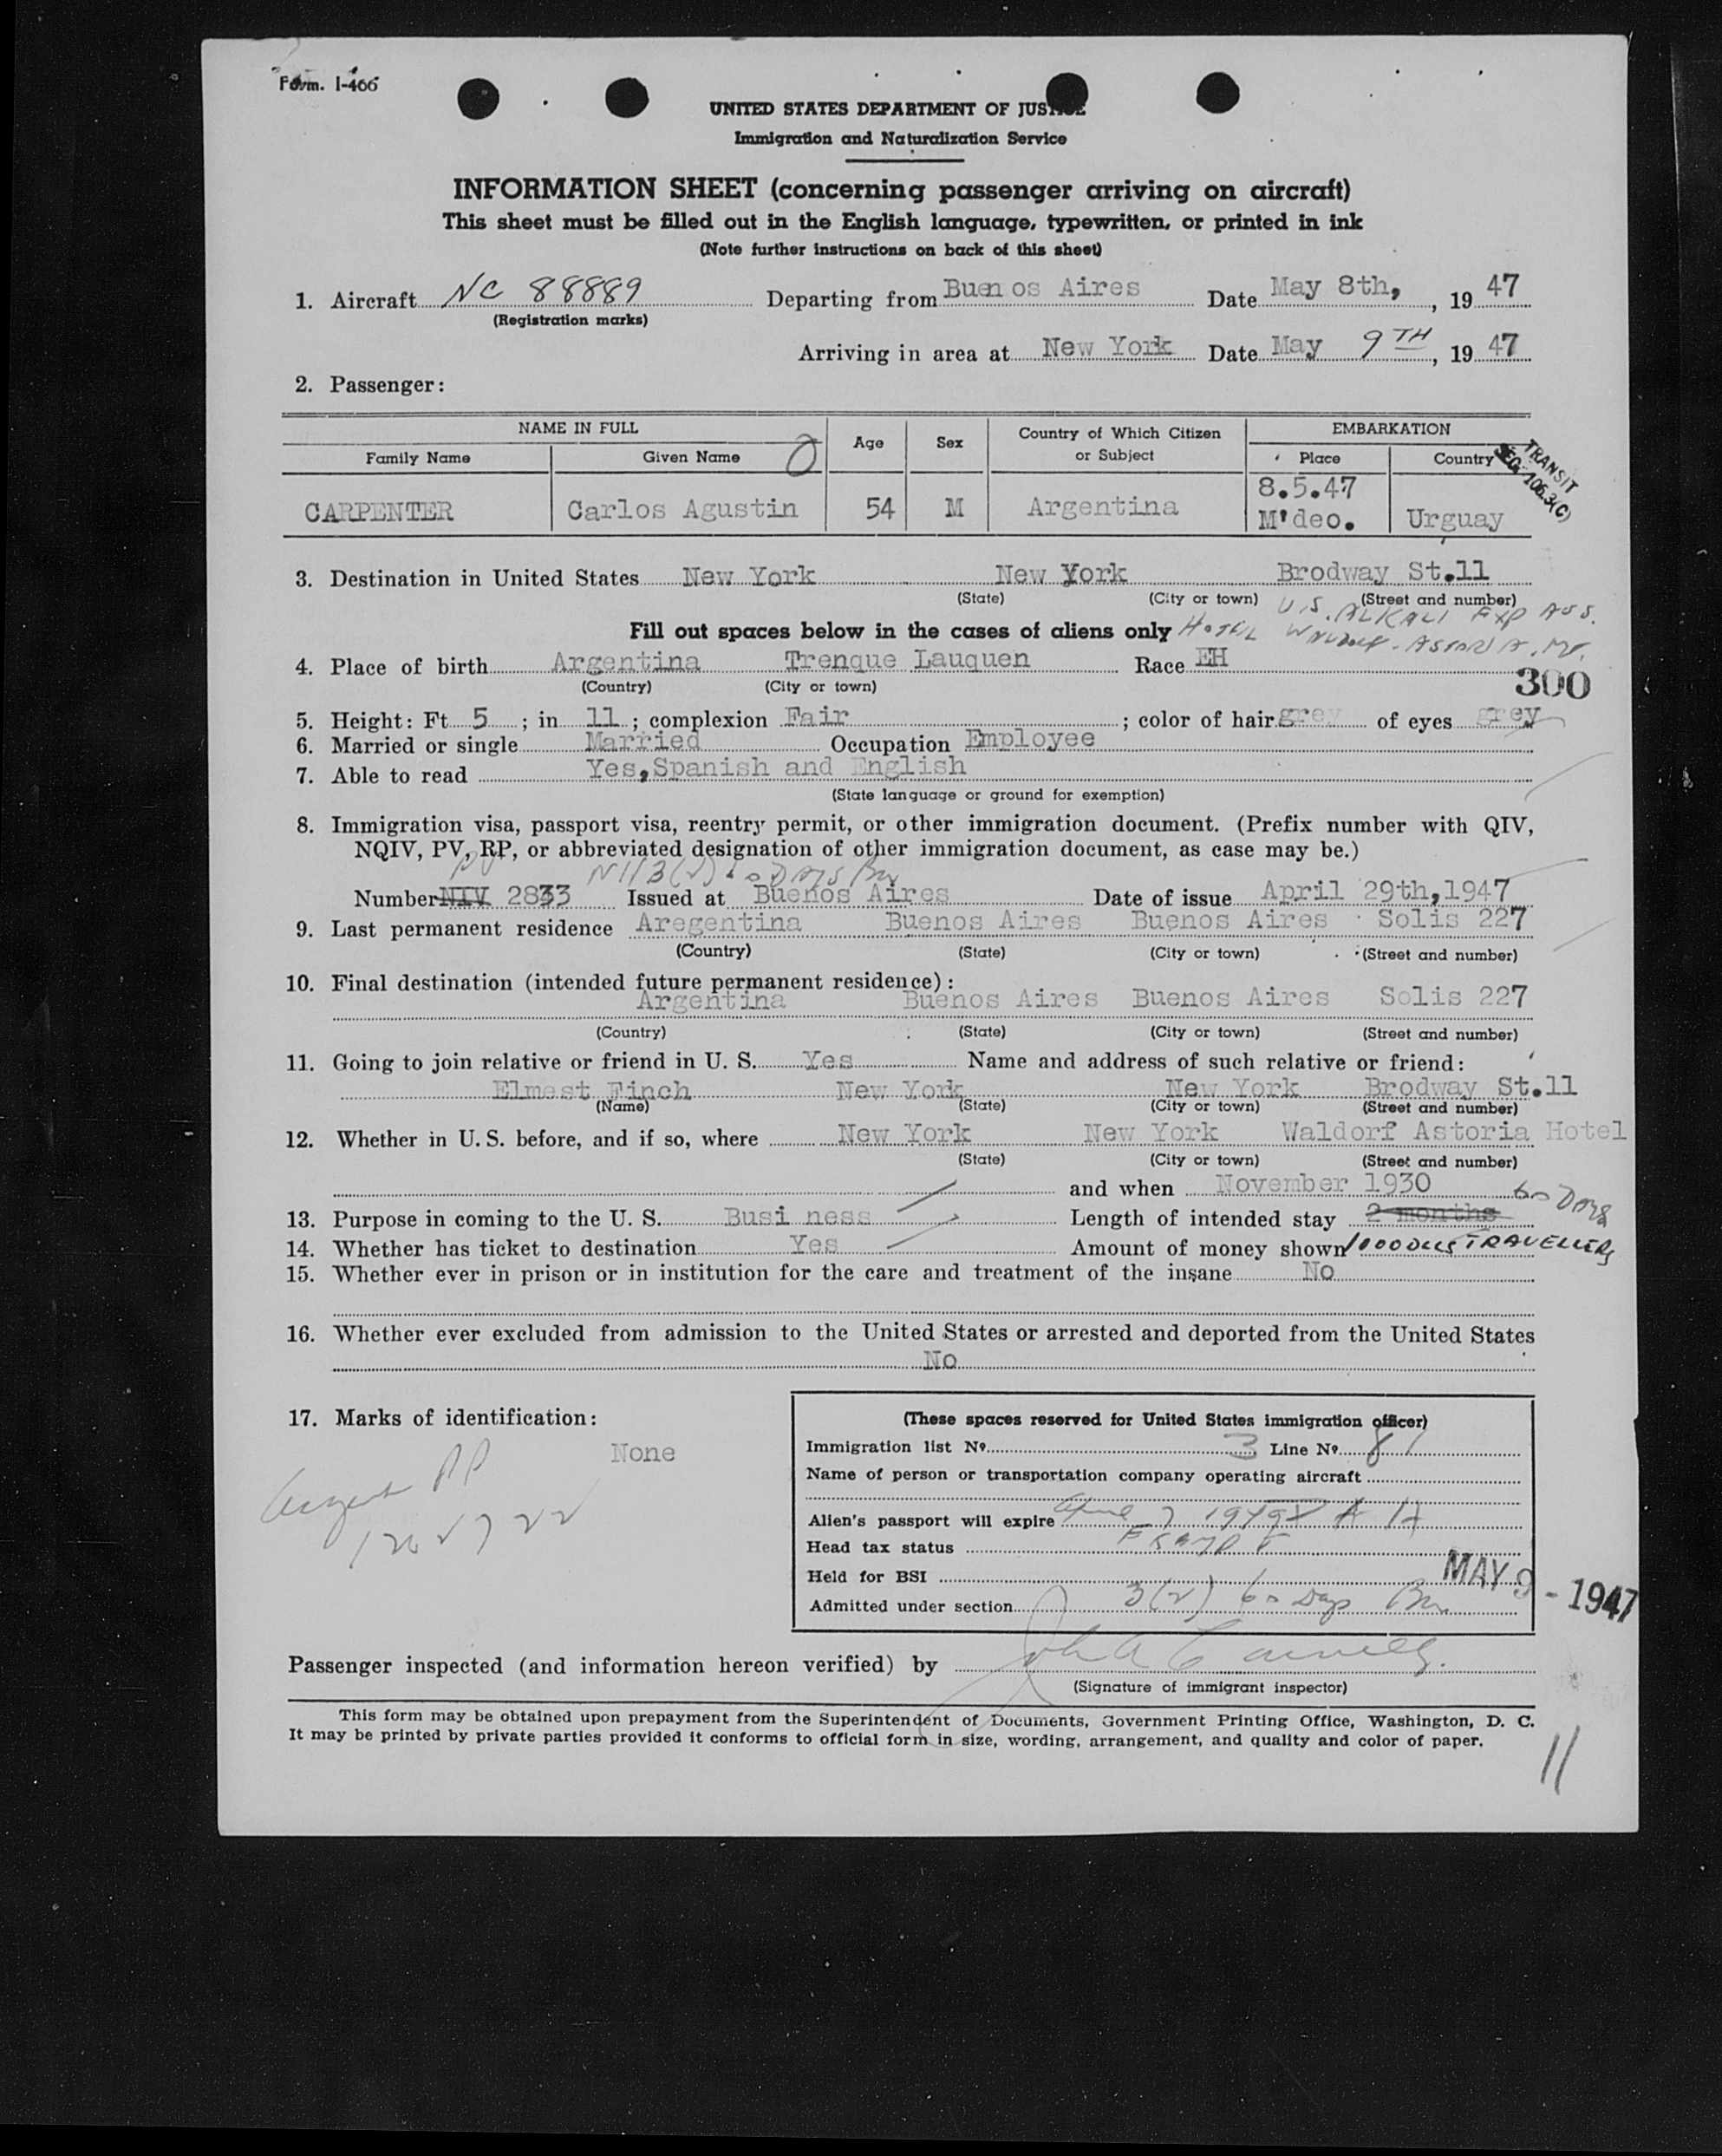 Form. I-466
UNITED STATES DEPARTMENT OF JUSTICE
Immigration and Naturalization Service
INFORMATION SHEET (concerning passenger arriving on aircraft)
This sheet must be filled out in the English language, typewritten, or printed in ink
(Note further instructions on back of this sheet)
1. Aircraft NC 88889 Departing from Buenos Aires Date May 8th, , 19 47
(Registration marks)
Arriving in area at New York Date May 9TH, 19 47
2. Passenger:
NAME IN FULL Age Sex Country of Which Citizen or Subject EMBARKATION
Family Name Given Name Place Country
TRANSIT
SEC. 106.3(C)
8.5.47
CARPENTER Carlos Agustin 54 M Argentina M'deo. Urguay
3. Destination in United States New York New York Brodway St.11
(State) (City or town) (Street and number)
U.S. ALKALI EXP ASS.
Fill out spaces below in the cases of aliens only HOTEL WALDORF-ASTORIA. NY.
4. Place of birth Argentina Trenque Lauquen Race EH
(Country) (City or town)
300
5. Height: Ft 5 ; in 11 ; complexion Fair ; color of hair grey of eyes grey
6. Married or single Married Occupation Employee
7. Able to read Yes,Spanish and English
(State language or ground for exemption)
8. Immigration visa, passport visa, reentry permit, or other immigration document. (Prefix number with QIV,
NQIV, PV, RP, or abbreviated designation of other immigration document, as case may be.)
PV 3(2) 60 DAYS
Number NIV 2833 Issued at Buenos Aires Date of issue April 29th,1947
9. Last permanent residence Aregentina Buenos Aires Buenos Aires Solis 227
(Country) (State) (City or town) (Street and number)
10. Final destination (intended future permanent residence):
Argentina Buenos Aires Buenos Aires Solis 227
(Country) (State) (City or town) (Street and number)
11. Going to join relative or friend in U. S. Yes Name and address of such relative or friend:
Elmest Finch New York New York Brodway St.11
(Name) (State) (City or town) (Street and number)
12. Whether in U. S. before, and if so, where New York New York Waldorf Astoria Hotel
(State) (City or town) (Street and number)
and when November 1930
60 Days
13. Purpose in coming to the U. S. Busi ness Length of intended stay 2 months
14. Whether has ticket to destination Yes Amount of money shown 1000 DLLS TRAVELLERS
15. Whether ever in prison or in institution for the care and treatment of the insane No
16. Whether ever excluded from admission to the United States or arrested and deported from the United States
No
17. Marks of identification:
None
PP
(These spaces reserved for United States immigration officer)
Immigration list No. 3 Line No. 8
Name of person or transportation company operating aircraft
Alien's passport will expire 1949
Head tax status
Held for BSI
MAY 9 - 1947
Admitted under section 3(2) 60 Days
Passenger inspected (and information hereon verified) by
(Signature of immigrant inspector)
This form may be obtained upon prepayment from the Superintendent of Documents, Government Printing Office, Washington, D. C.
It may be printed by private parties provided it conforms to official form in size, wording, arrangement, and quality and color of paper.
11